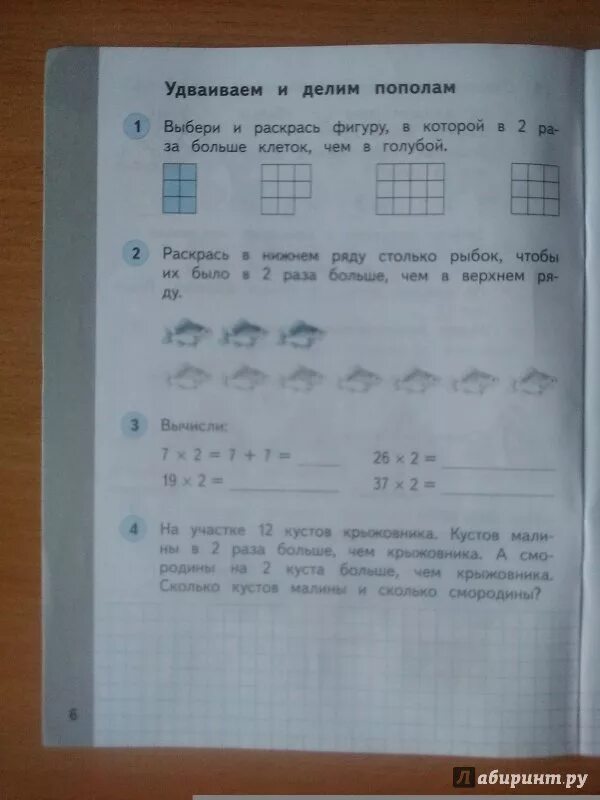 Удваиваем и делим пополам
1 Выбери и раскрась фигуру, в которой в 2 ра-
за больше клеток, чем в голубой.
2 Раскрась в нижнем ряду столько рыбок, чтобы
их было в 2 раза больше, чем в верхнем ря-
ду.
3 Вычисли:
7 × 2 = 7 + 7 = ____ 26 × 2 = ____
19 × 2 = ____ 37 × 2 = ____
4 На участке 12 кустов крыжовника. Кустов мали-
ны в 2 раза больше, чем крыжовника. А смо-
родины на 2 куста больше, чем крыжовника.
Сколько кустов малины и сколько смородины?
6
Лабиринт.ру